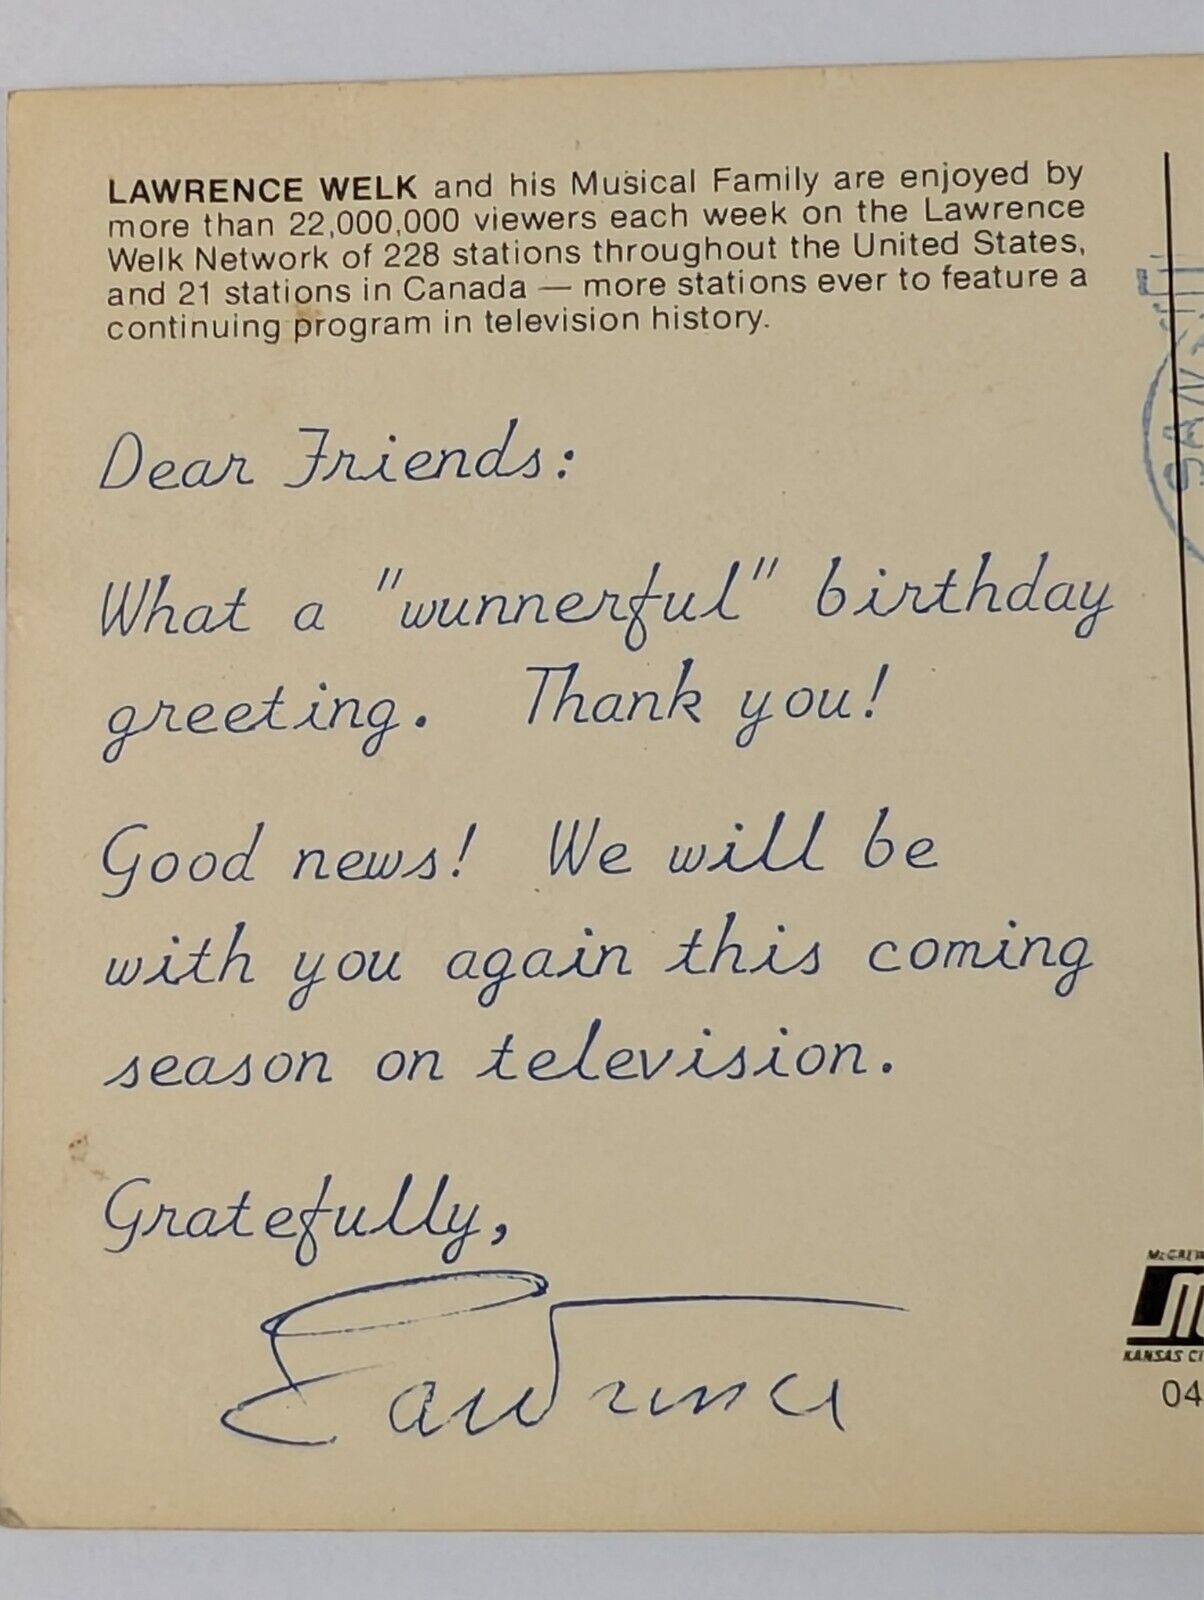 LAWRENCE WELK and his Musical Family are enjoyed by
more than 22,000,000 viewers each week on the Lawrence
Welk Network of 228 stations throughout the United States,
and 21 stations in Canada — more stations ever to feature a
continuing program in television history.
Dear Friends:
What a "wunnerful" birthday
greeting. Thank you!
Good news! We will be
with you again this coming
season on television.
Gratefully,
Lawrence
McGREW
KANSAS CI
04